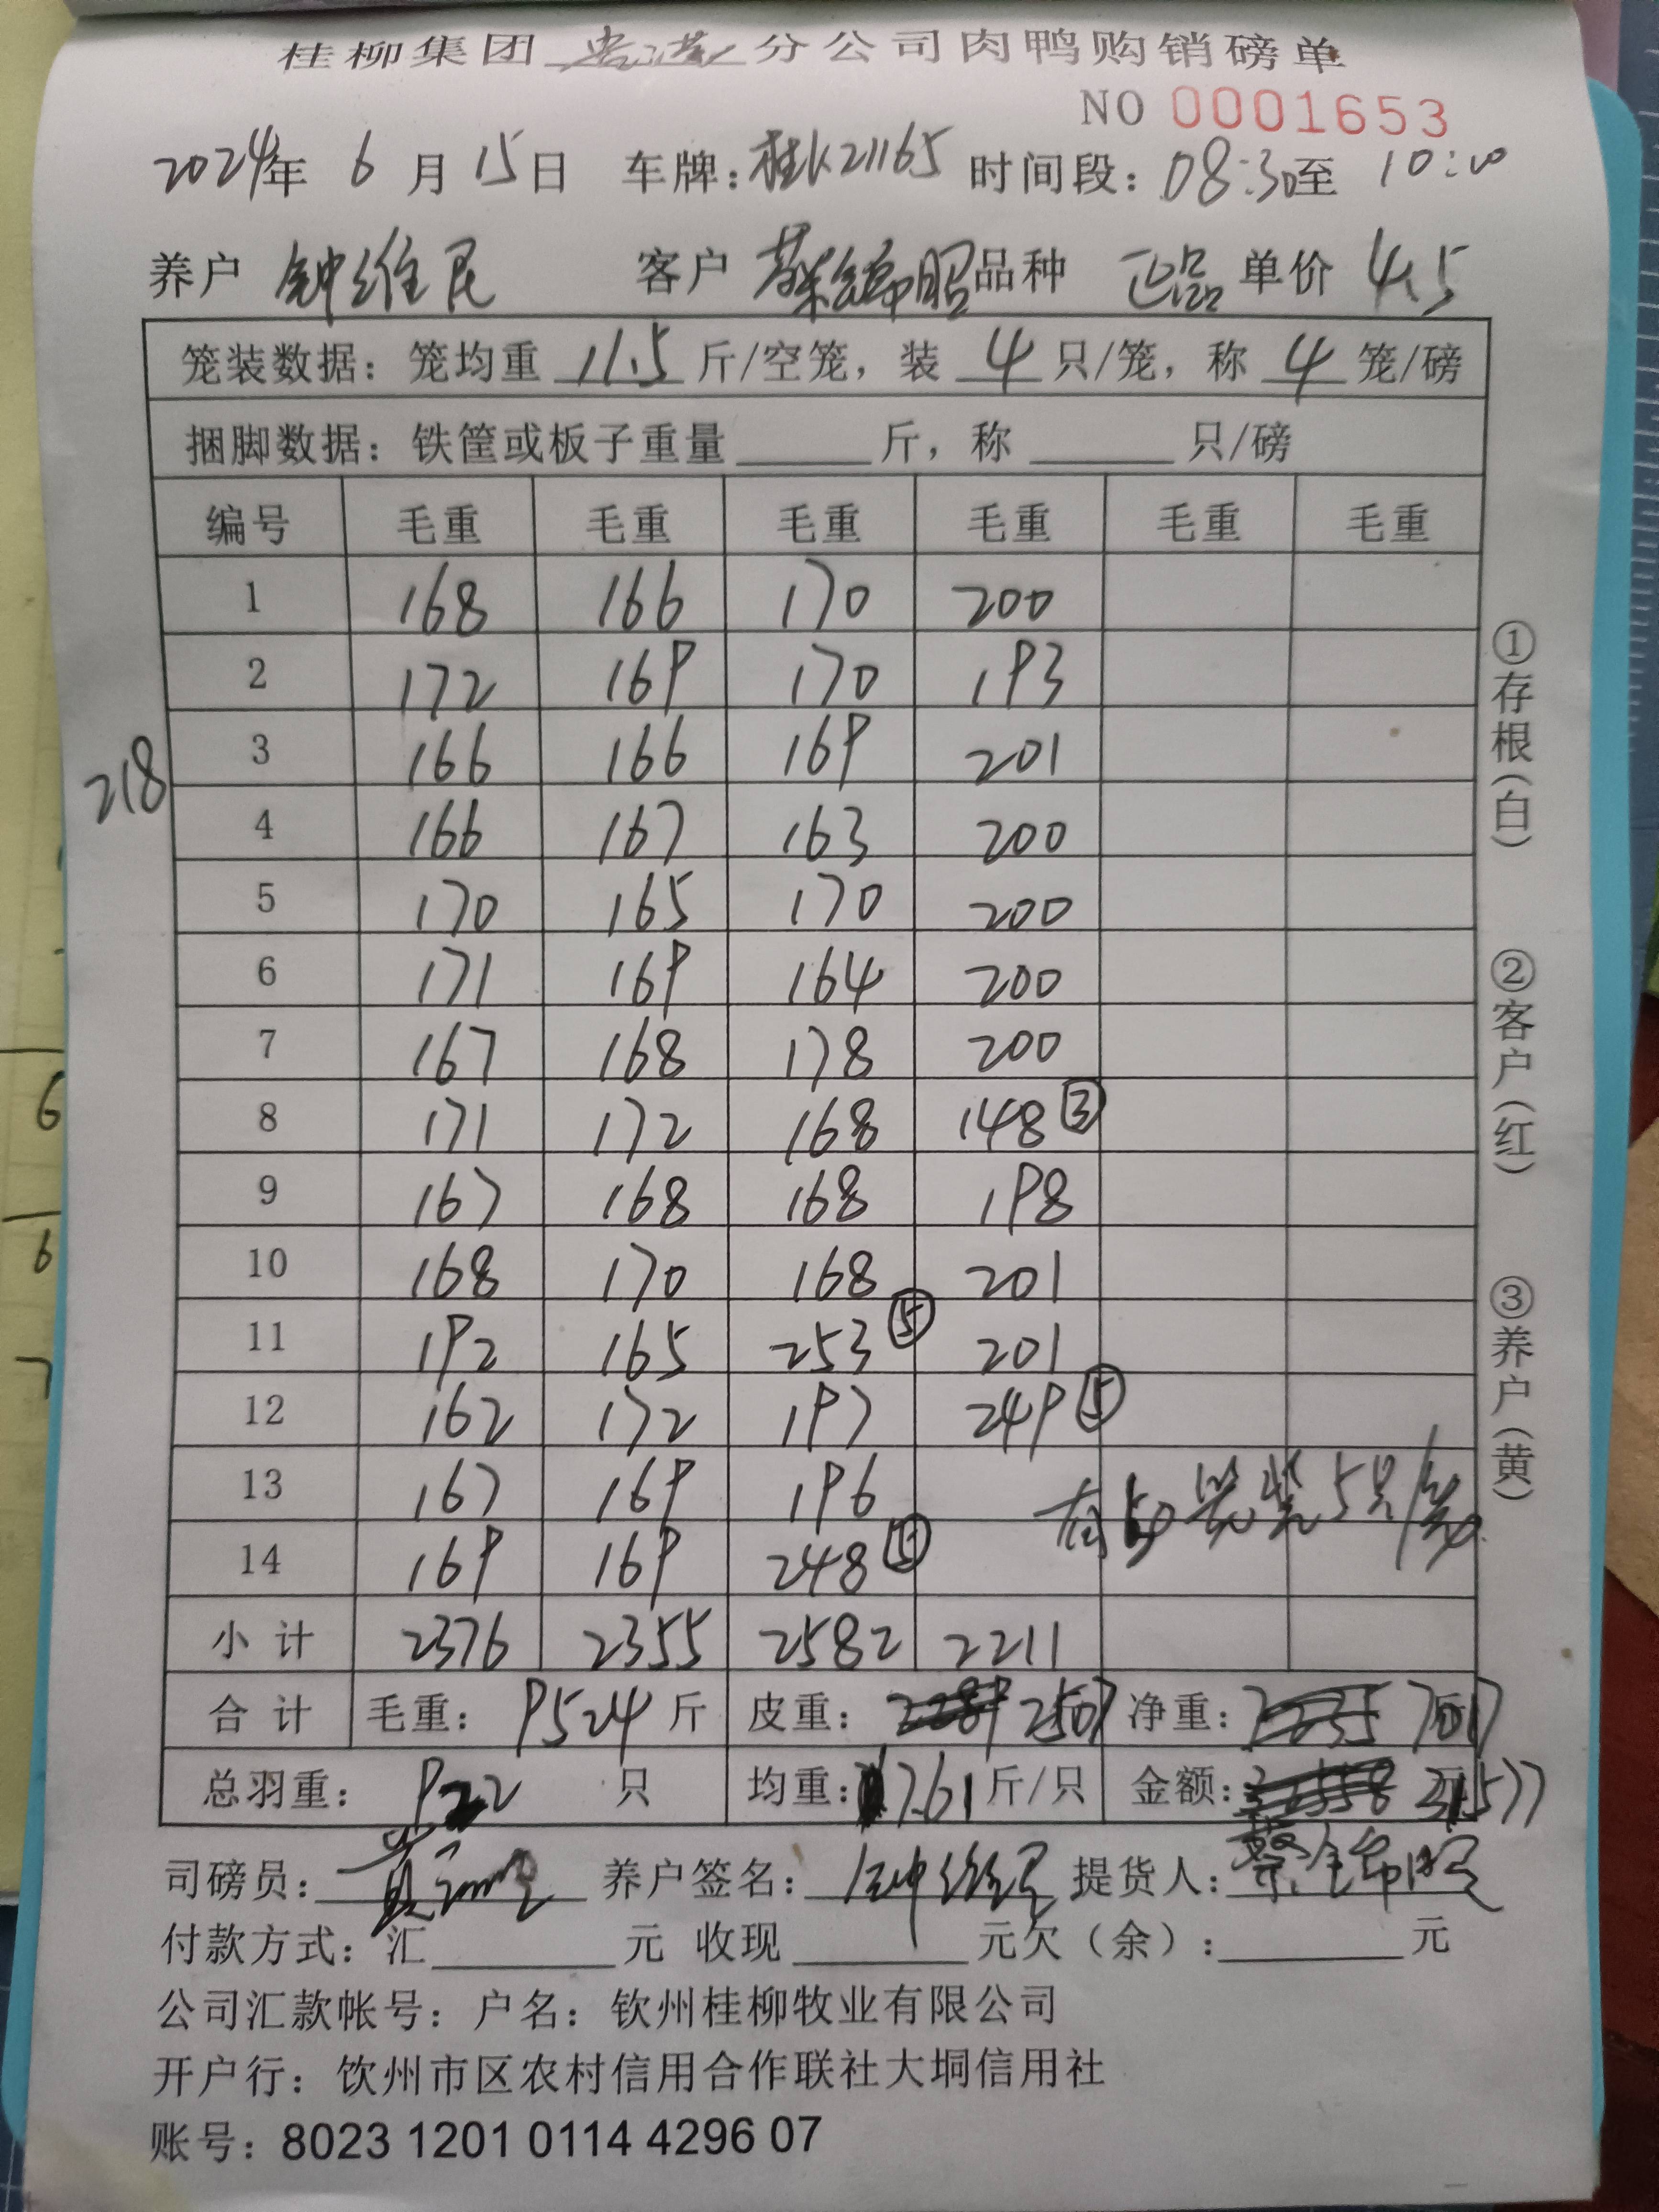 桂柳集团 贵港 分公司肉鸭购销磅单
NO 0001653
2024年 6 月 15日 车牌:桂K21165 时间段:08:30至 10:00
养户 钟维民 客户 蔡锦昭 品种 正品 单价 4.5
笼装数据:笼均重 11.5 斤/空笼,装 4 只/笼,称 4 笼/磅
捆脚数据:铁筐或板子重量 斤,称 只/磅
编号 毛重 毛重 毛重 毛重 毛重 毛重
1 168 166 170 200
2 172 169 170 193
3 166 166 169 201
218
4 166 167 163 200
5 170 165 170 200
6 171 169 164 200
7 167 168 178 200
8 171 172 168 148 ③
9 167 168 168 198
10 168 170 168 201
11 192 165 253 ⑤ 201
12 162 172 197 249 ⑤
13 167 169 196
有50笼装5只/笼
14 169 169 248 ⑤
小计 2376 2355 2582 2211
合计 毛重: 9524 斤 皮重: 2289 2507 净重: 7235 7017
总羽重: 922 只 均重: 7.61 斤/只 金额: 32558 31577
司磅员: 养户签名: 钟维民 提货人: 蔡锦昭
付款方式:汇 元 收现 元欠(余): 元
公司汇款帐号:户名:钦州桂柳牧业有限公司
开户行:钦州市区农村信用合作联社大垌信用社
账号:8023 1201 0114 4296 07
①存根(白)
②客户(红)
③养户(黄)
6
6
7